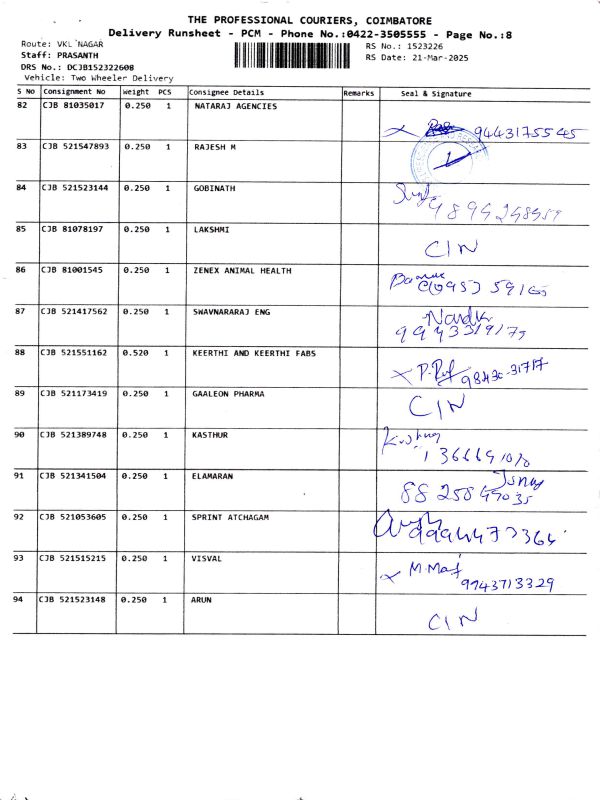 THE PROFESSIONAL COURIERS, COIMBATORE
Delivery Runsheet - PCM - Phone No.:0422-3505555 - Page No.:8
Route: VKL NAGAR
RS No.: 1523226
Staff: PRASANTH
RS Date: 21-Mar-2025
DRS No.: DCJB152322608
Vehicle: Two Wheeler Delivery
S No Consignment No Weight PCS Consignee Details Remarks Seal & Signature
82 CJB 81035017 0.250 1 NATARAJ AGENCIES
9443175545
83 CJB 521547893 0.250 1 RAJESH M
84 CJB 521523144 0.250 1 GOBINATH
85 CJB 81078197 0.250 1 LAKSHMI
CIN
86 CJB 81001545 0.250 1 ZENEX ANIMAL HEALTH
87 CJB 521417562 0.250 1 SWAVNARARAJ ENG
88 CJB 521551162 0.520 1 KEERTHI AND KEERTHI FABS
98430-31717
89 CJB 521173419 0.250 1 GAALEON PHARMA
CIN
90 CJB 521389748 0.250 1 KASTHUR
91 CJB 521341504 0.250 1 ELAMARAN
92 CJB 521053605 0.250 1 SPRINT ATCHAGAM
93 CJB 521515215 0.250 1 VISVAL
9943713329
94 CJB 521523148 0.250 1 ARUN
CIN